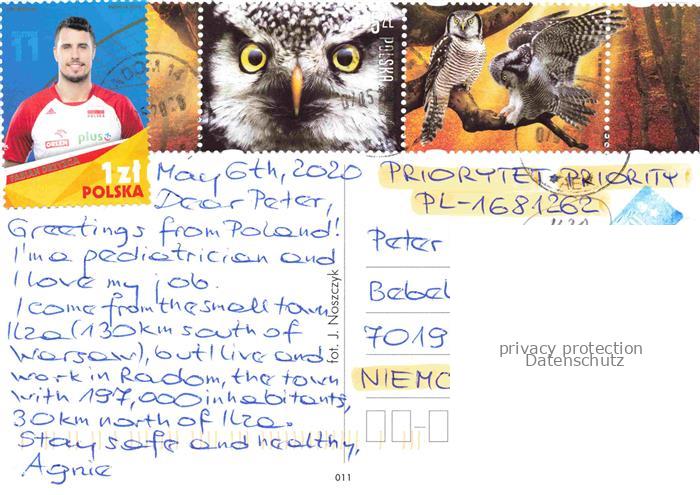 11
ORLEN
plus
POLSKA
FABIAN DRZYZGA
1 zł
POLSKA
May 6th, 2020
Dear Peter,
Greetings from Poland!
I'm a pediatrician and
I love my job.
I come from the small town
Ilza (130km south of
Warsaw), but I live and
work in Radom, the town
with 197,000 inhabitants,
30km north of Ilza.
Stay safe and healthy,
Agnie
fot. J. Noszczyk
011
PRIORYTET • PRIORITY
PL-1681262
Peter
Bebel
7019
NIEMC
privacy protection
Datenschutz